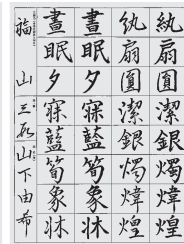 紈扇圓潔銀燭煒煌
紈扇圓潔銀燭煒煌
晝眠夕寐藍筍象牀
晝眠夕寐藍筍象牀
福山
山下由希